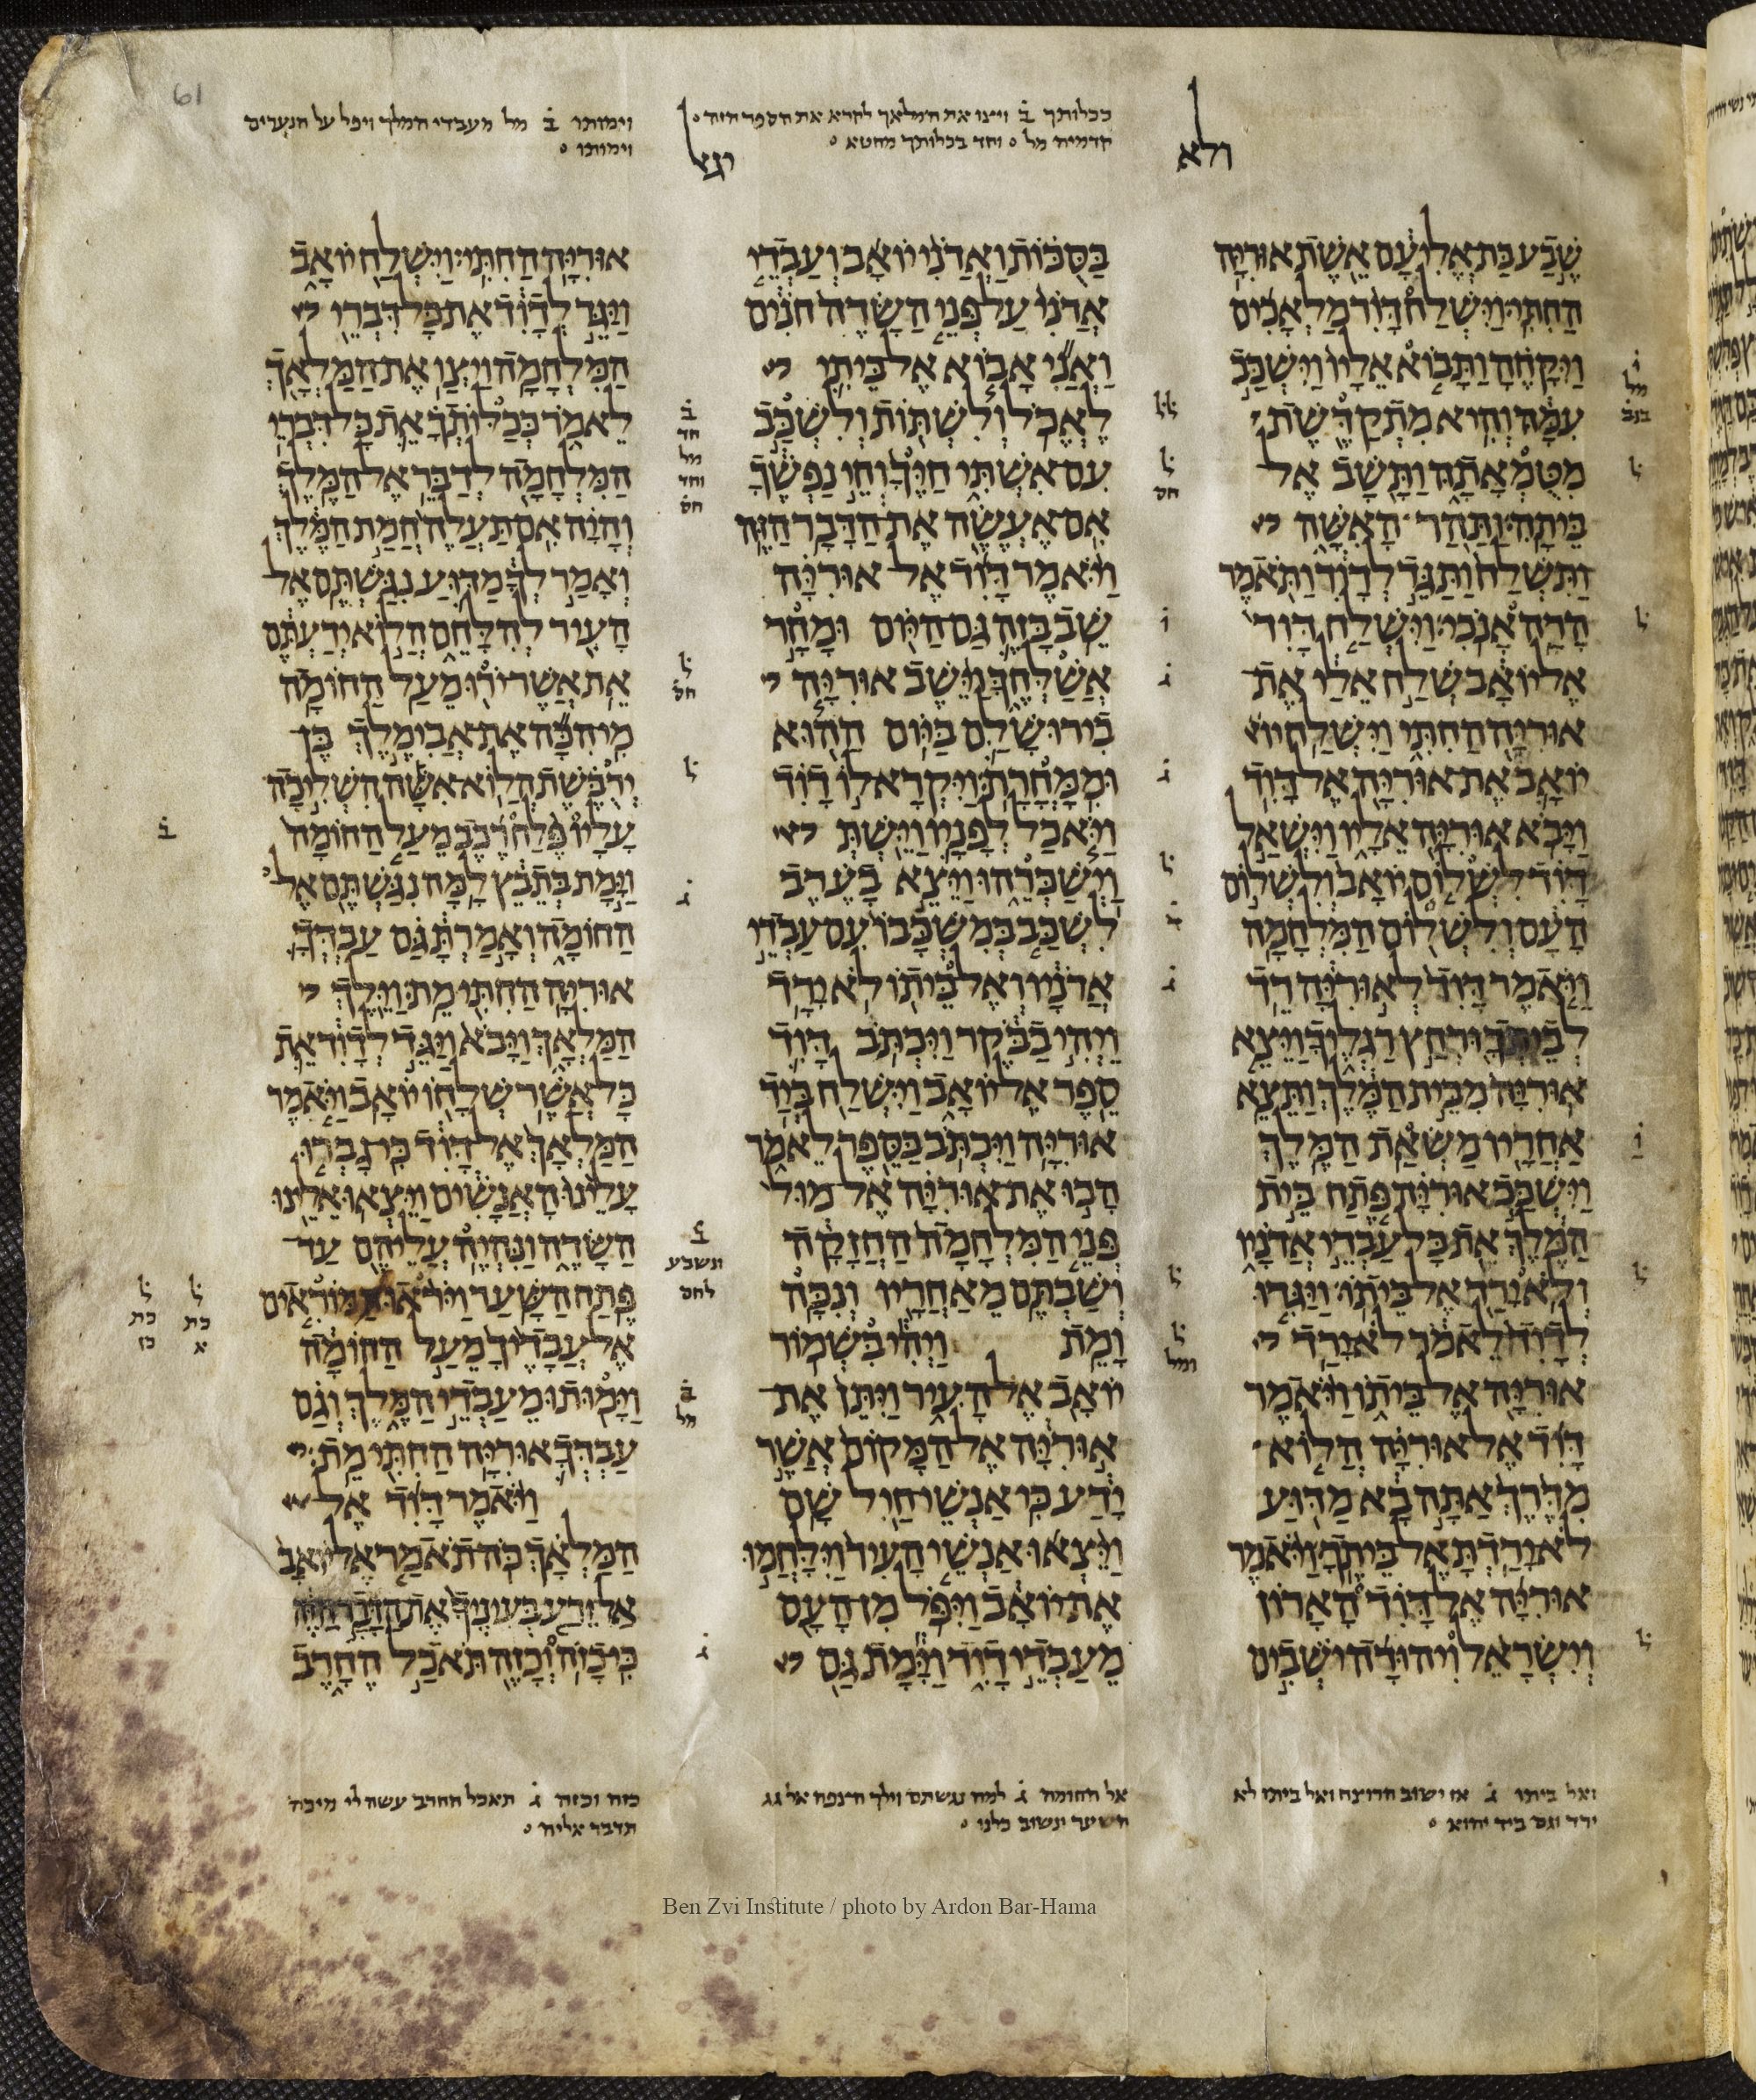 61
בכלותך ב ויצו את המלאך לקרא את הספר הזה
קדמיה מל וחד בכלותך מחטא
וימותו ב מל מעבדי המלך ויפל על הנערים
וימותו
שבע בת אליעם אשת אוריה
החתי וישלח דוד מלאכים
ויקחה ותבוא אליו וישכב
עמה והיא מתקדשת
מטמאתה ותשב אל
ביתה ותהר האשה
ותשלח ותגד לדוד ותאמר
הרה אנכי וישלח דוד
אל יואב שלח אלי את
אוריה החתי וישלח יו
יואב את אוריה אל דוד
ויבא אוריה אליו וישאל
דוד לשלום יואב ולשלום
העם ולשלום המלחמה
ויאמר דוד לאוריה רד
לביתך ורחץ רגליך ויצא
אוריה מבית המלך ותצא
אחריו משאת המלך
וישכב אוריה פתח בית
המלך את כל עבדי אדניו
ולא ירד אל ביתו ויגדו
לדוד לאמר לא ירד
אוריה אל ביתו ויאמר
דוד אל אוריה הלוא
מדרך אתה בא מדוע
לא ירדת אל ביתך ויאמר
אוריה אל דוד הארון
וישראל ויהודה ישבים
בסכות ואדני יואב ועבדי
אדני על פני השדה חנים
ואני אבוא אל ביתי
לאכל ולשתות ולשכב
עם אשתי חיך וחי נפשך
אם אעשה את הדבר הזה
ויאמר דוד אל אוריה
שב בזה גם היום ומחר
אשלחך וישב אוריה
בירושלם ביום ההוא
וממחרת ויקרא לו דוד
ויאכל לפניו וישת
וישכרהו ויצא בערב
לשכב במשכבו עם עבדי
אדניו ואל ביתו לא ירד
ויהי בבקר ויכתב דוד
ספר אל יואב וישלח ביד
אוריה ויכתב בספר לאמר
הבו את אוריה אל מול
פני המלחמה החזקה
ושבתם מאחריו ונכה
ומת ויהי בשמור
יואב אל העיר ויתן את
אוריה אל המקום אשר
ידע כי אנשי חיל שם
ויצאו אנשי העיר וילחמו
את יואב ויפל מן העם
מעבדי דוד וימת גם
אוריה החתי וישלח יואב
ויגד לדוד את כל דברי
המלחמה ויצו את המלאך
לאמר ככלותך את כל דברי
המלחמה לדבר אל המלך
והיה אם תעלה חמת המלך
ואמר לך מדוע נגשתם אל
העיר להלחם הלוא ידעתם
את אשר ירו מעל החומה
מי הכה את אבימלך בן
ירבשת הלוא אשה השליכה
עליו פלח רכב מעל החומה
וימת בתבץ למה נגשתם אל
החומה ואמרת גם עבדך
אוריה החתי מת וילך
המלאך ויבא ויגד לדוד את
כל אשר שלחו יואב ויאמר
המלאך אל דוד כי גברו
עלינו האנשים ויצאו אלינו
השדה ונהיה עליהם עד
פתח השער ויראו המוראים
אל עבדיך מעל החומה
וימותו מעבדי המלך וגם
עבדך אוריה החתי מת
ויאמר דוד אל
המלאך כה תאמר אל יואב
אל ירע בעיניך את הדבר הזה
כי כזה וכזה תאכל החרב
ואל ביתו ג אז ישוב הרוצח ואל ביתו לא
ירד וגם ביד יהוא
אל החומה ג למה נגשתם וילך הרצפה אל גג
השער ונשוב כלנו
כזה וכזה ג תאכל החרב עשה לי מיכה
תדבר אליה
Ben Zvi Institute / photo by Ardon Bar-Hama